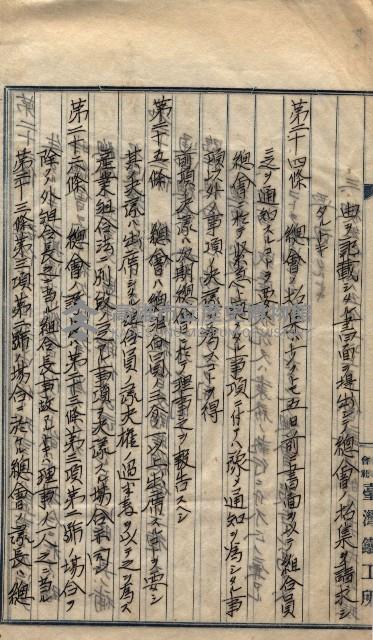 由ヲ記載シタル書面ヲ提出シテ總會ノ招集ヲ請求シ
タルトキ
第二十四條　總會ノ招集ハ少クトモ五日前ニ書面ヲ以テ組合員
ニ之ヲ通知スルコトヲ要ス
總會ニ於テ緊急ト認メタル事項ニ付テハ豫メ通知ヲ為シタル事
項以外ノ事項ノ決議ヲ為スコトヲ得
前項ノ決議ハ次期總會ニ於テ理事之ヲ報告スヘシ
第二十五條　總會ハ總組合員ノ三分ノ一以上出席スルコトヲ要シ
其ノ決議ハ出席シタル組合員ノ議決權ノ過半數ヲ以テ之ヲ為ス
產業組合法ニ別段ノ定アル事項ヲ決議スル場合亦同シ
第二十六條　總會ノ議長ハ第二十三條第二項第二號ノ場合ヲ
除クノ外組合長之ニ當ル組合長事故アルトキハ理事ノ一人之ニ當ル
第二十三條第二項第二號ノ場合ニ於ケル總會ノ議長ハ總
會社
臺灣鐵工所